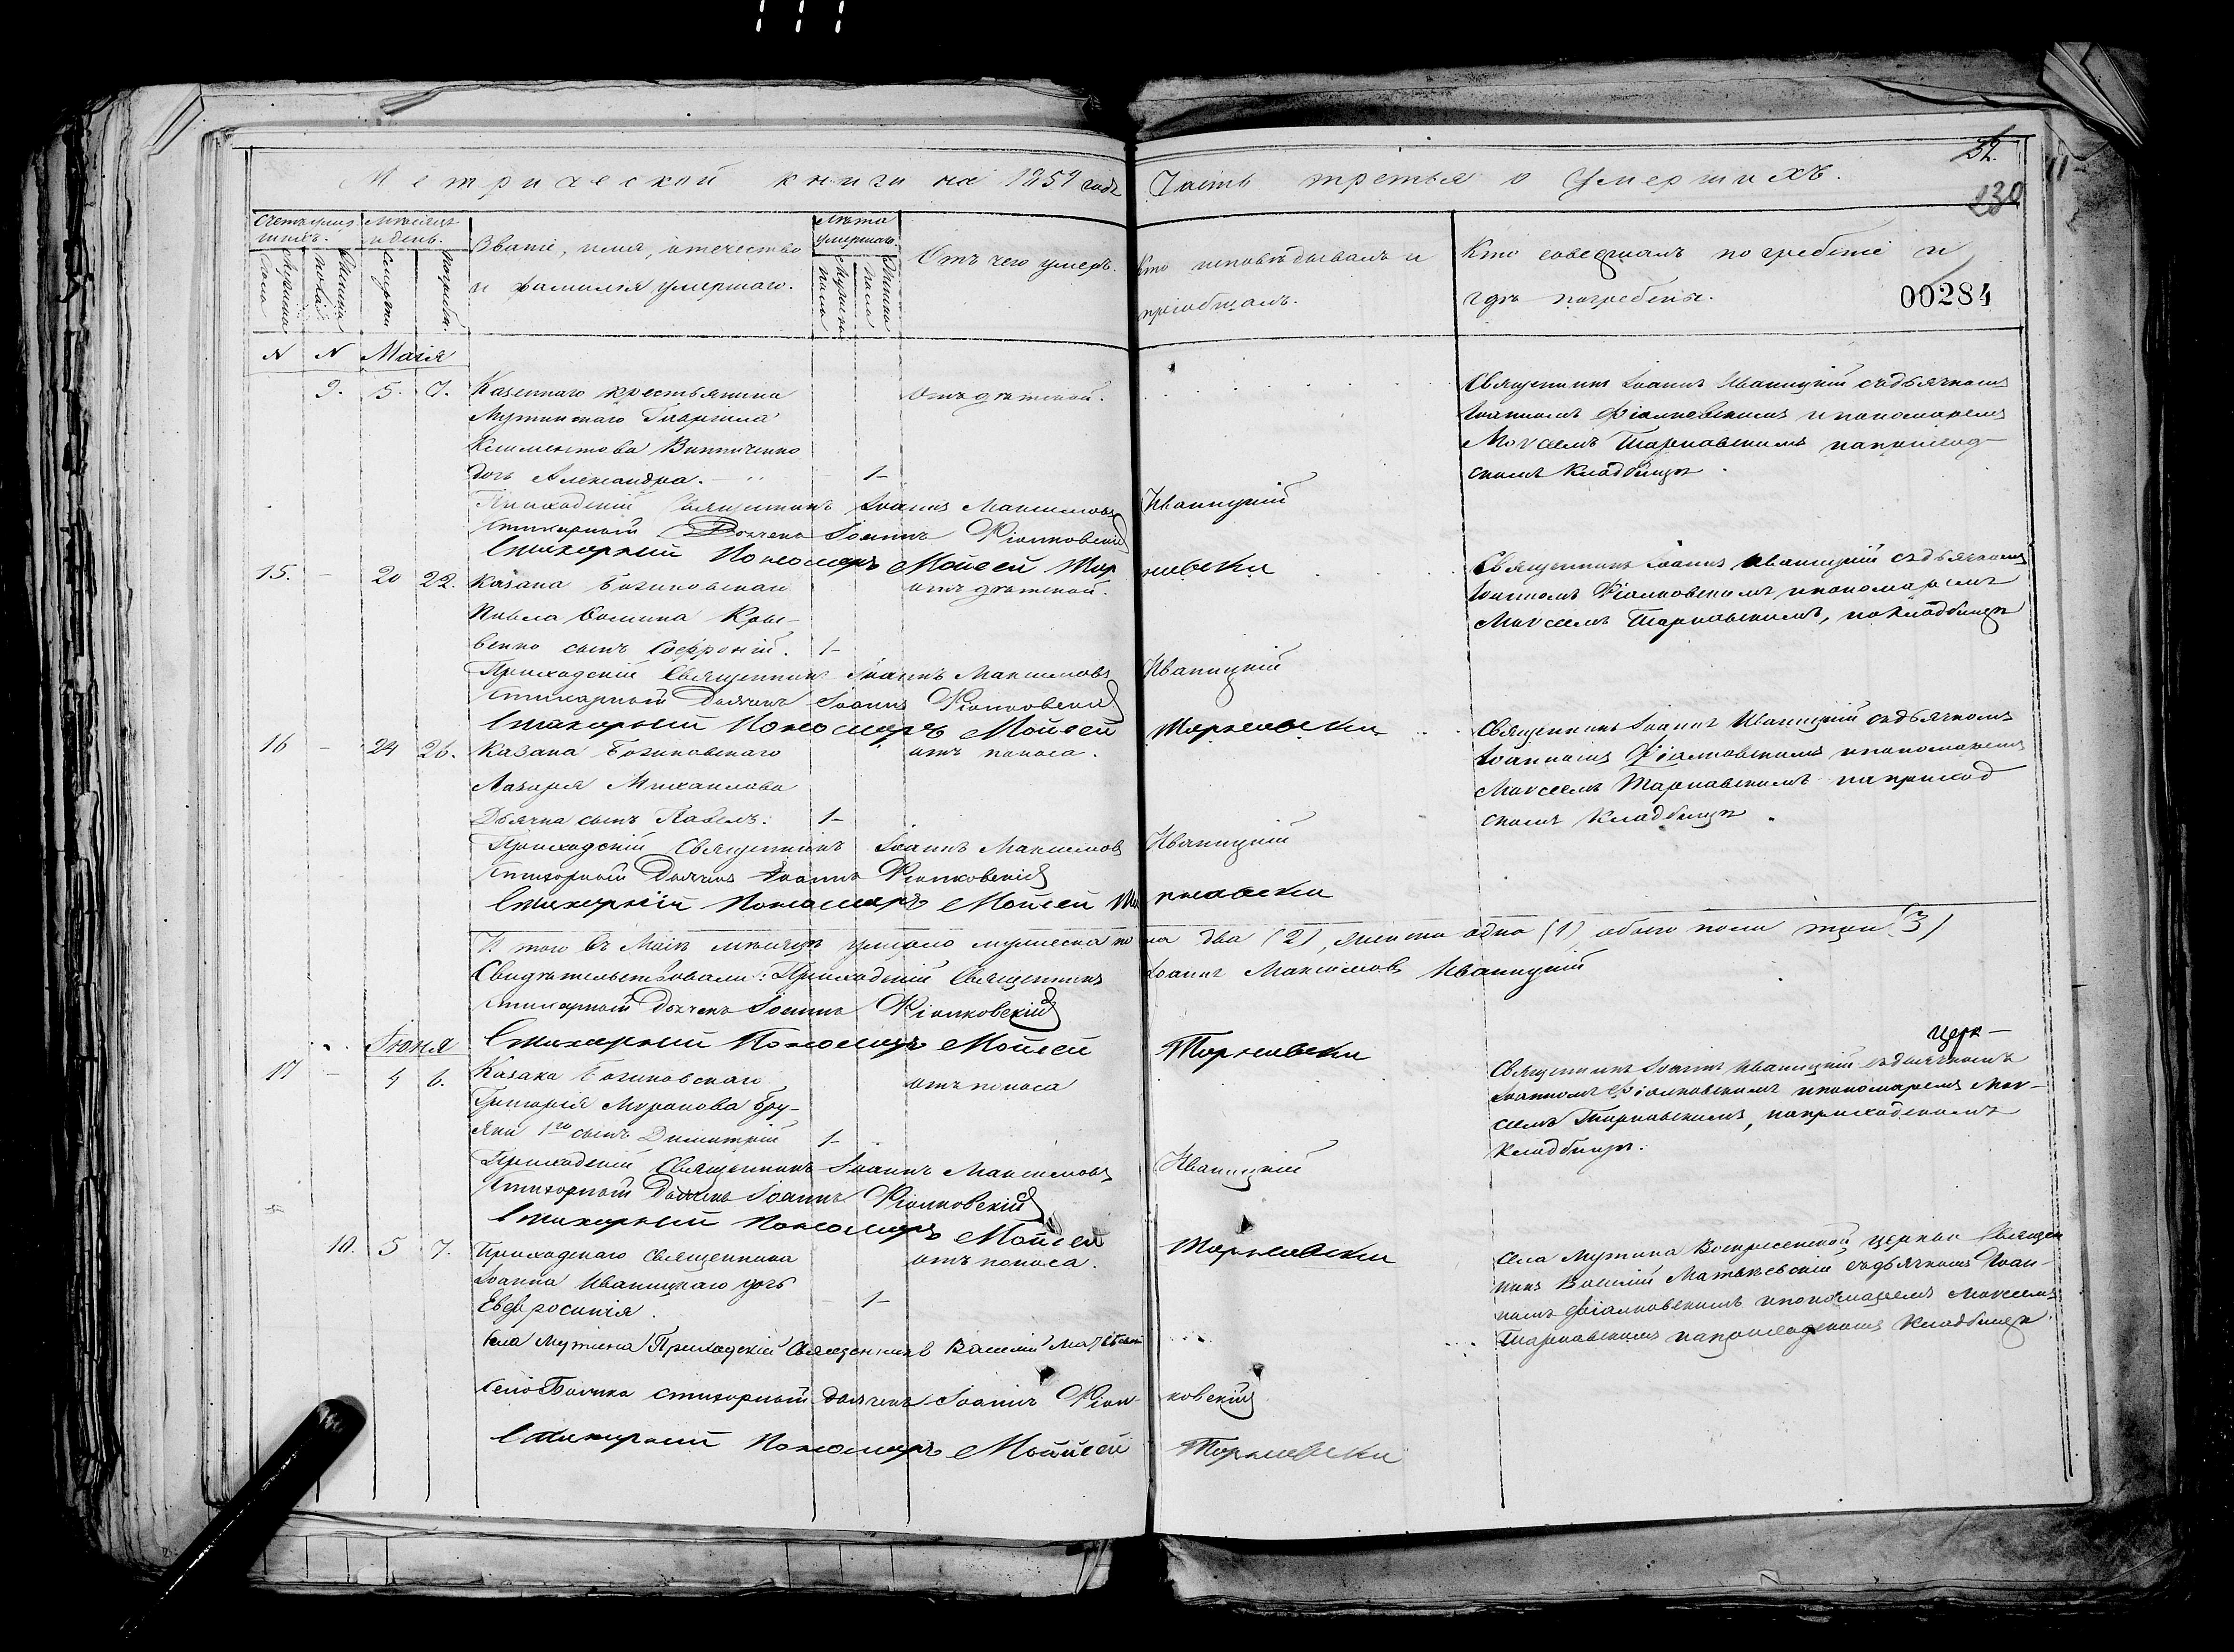 Метрической книги на 1859 годъ
Часть третья о умершихъ.
52.
230
00284
Счетъ умер
шихъ.
Мужеска
пола
Женска
пола
Мѣсяцъ
и день.
смерти
погреб.
Званіе, имя, отечество
и фамилія умершаго.
Лѣта
умершаго.
Мужеска
пола
Женска
пола
Отъ чего умеръ.
Кто исповѣдывалъ и
пріобщалъ.
Кто совершалъ погребеніе и
гдѣ погребены.
N N Маія
9. 5. 7. Казеннаго крестьянина
Мутинскаго Гавріила
Климентова Винниченко
дочь Александра. 1-
отъ дѣтской.
Священникъ Іоаннъ Иваницкій съ дьячкомъ
Іоанномъ Фіалковскимъ и пономаремъ
Мoѵсеемъ Тарнавскимъ на приход-
скомъ кладбищѣ.
Приходскій Священникъ Іоаннъ Максимовъ Иваницкій
стихарный Дьячекъ Іоаннъ Фіалковскій
Стихарный Пономарь Мойсей Тарнавски
15. - 20 22. Казака
Павла Фомина Кры-
венко сынъ Софроній. 1-
отъ дѣтской.
Священникъ Іоаннъ Иваницкій съ дьячкомъ
Іоанномъ Фіалковскимъ и пономаремъ
Мoѵсеемъ Тарнавскимъ, на кладбищѣ
Приходскій Священникъ Іоаннъ Максимовъ Иваницкій
стихарный Дьячекъ Іоаннъ Фіалковскій
Стихарный Пономарь Мойсей Тарнавски
16 - 24 26. Казака
Лазаря Михаилова
Дьячка сынъ Павелъ. 1-
отъ поноса.
Священникъ Іоаннъ Иваницкій съ дьячкомъ
Іоанномъ Фіалковскимъ и пономаремъ
Мoѵсеемъ Тарнавскимъ на приход
скомъ кладбищѣ.
Приходскій Священникъ Іоаннъ Максимовъ Иваницкій
стихарный Дьячекъ Іоаннъ Фіалковскій
Стихарный Пономарь Мойсей Тарнавски
И того въ Маіѣ мѣсяцѣ умерло мужеска пола два (2), женска одна (1) обоего пола три (3)
Свидѣтельствовали: Приходскій Священникъ Іоаннъ Максимовъ Иваницкій
стихарный Дьячекъ Іоаннъ Фіалковскій
Стихарный Пономарь Мойсей Тарнавски
Іюня
17 - 4 6. Казака
Григорія Миронова Бру-
яки 1го сынъ Димитрій 1-
отъ поноса
Церк-
Священникъ Іоаннъ Иваницкій съ дьячкомъ
Іоанномъ Фіалковскимъ и пономаремъ Мoѵ-
сеемъ Тарнавскимъ, на приходскомъ
кладбищѣ.
Приходскій Священникъ Іоаннъ Максимовъ Иваницкій
стихарный Дьячекъ Іоаннъ Фіалковскій
Стихарный Пономарь Мойсей Тарнавски
10. 5 7. Приходскаго Священника
Іоанна Иваницкаго дочь
Евфросинія. 1-
отъ поноса.
Села Мутина Воскресенской церкви Священ
никъ Василій съ дьячкомъ Іоан-
номъ Фіалковскимъ и пономаремъ Мoѵсеемъ
Тарнавскимъ на приходскомъ кладбищѣ.
Села Мутина Приходскій Священникъ Василій
Села стихарный дьячекъ Іоаннъ Фіалковскій
Стихарный Пономарь Мойсей Тарнавски